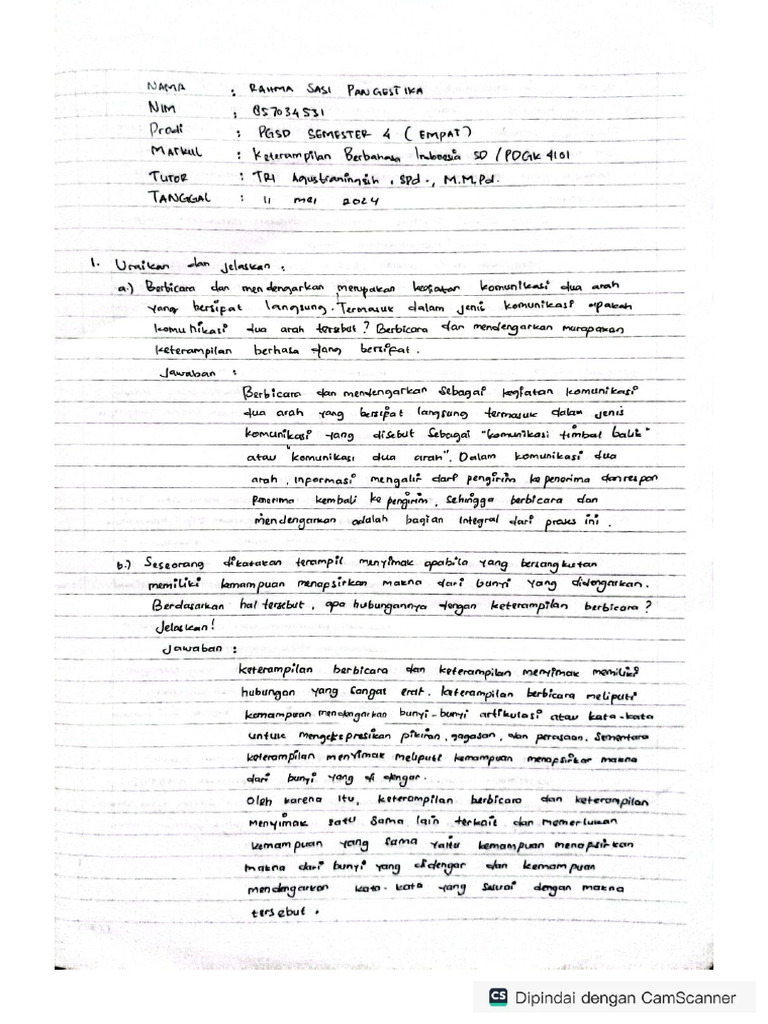 NAMA : RAHMA SASI PANGESTIKA
NIM : 857034531
Prodi : PGSD SEMESTER 4 (EMPAT)
MATKUL : Keterampilan Berbahasa Indonesia SD / PDGK 4101
TUTOR : TRI Agustianingsih, SPd., M.M.Pd.
TANGGAL : 11 mei 2024
1. Uraikan dan jelaskan :
a.) Berbicara dan mendengarkan merupakan kegiatan komunikasi dua arah
yang bersifat langsung. Termasuk dalam jenis komunikasi apakah
komunikasi dua arah tersebut? Berbicara dan mendengarkan murapakan
keterampilan berhasa yang bersifat.
Jawaban :
Berbicara dan mendengarkan sebagai kegiatan komunikasi
dua arah yang bersifat langsung termasuk dalam jenis
komunikasi yang disebut sebagai "komunikasi timbal balik"
atau "komunikasi dua arah". Dalam komunikasi dua
arah, informasi mengalir dari pengirim ke penerima dan respon
penerima kembali ke pengirim, sehingga berbicara dan
mendengarkan adalah bagian integral dari proses ini.
b.) Seseorang dikatakan terampil menyimak apabila yang bersangkutan
memiliki kemampuan menapsirkan makna dari bunyi yang didengarkan.
Berdasarkan hal tersebut, apa hubungannya dengan keterampilan berbicara?
Jelaskan!
Jawaban :
keterampilan berbicara dan keterampilan menyimak memiliki
hubungan yang sangat erat. keterampilan berbicara meliputi
kemampuan mendengarkan bunyi-bunyi artikulasi atau kata-kata
untuk mengekspresikan pikiran, gagasan, dan perasaan. Sementara
keterampilan menyimak meliputi kemampuan menapsirkan makna
dari bunyi yang di dengar.
Oleh karena itu, keterampilan berbicara dan keterampilan
menyimak satu sama lain terkait dan memerlukan
kemampuan yang sama yaitu kemampuan menapsirkan
makna dari bunyi yang didengar dan kemampuan
mendengarkan kata-kata yang sesuai dengan makna
tersebut.
CS Dipindai dengan CamScanner